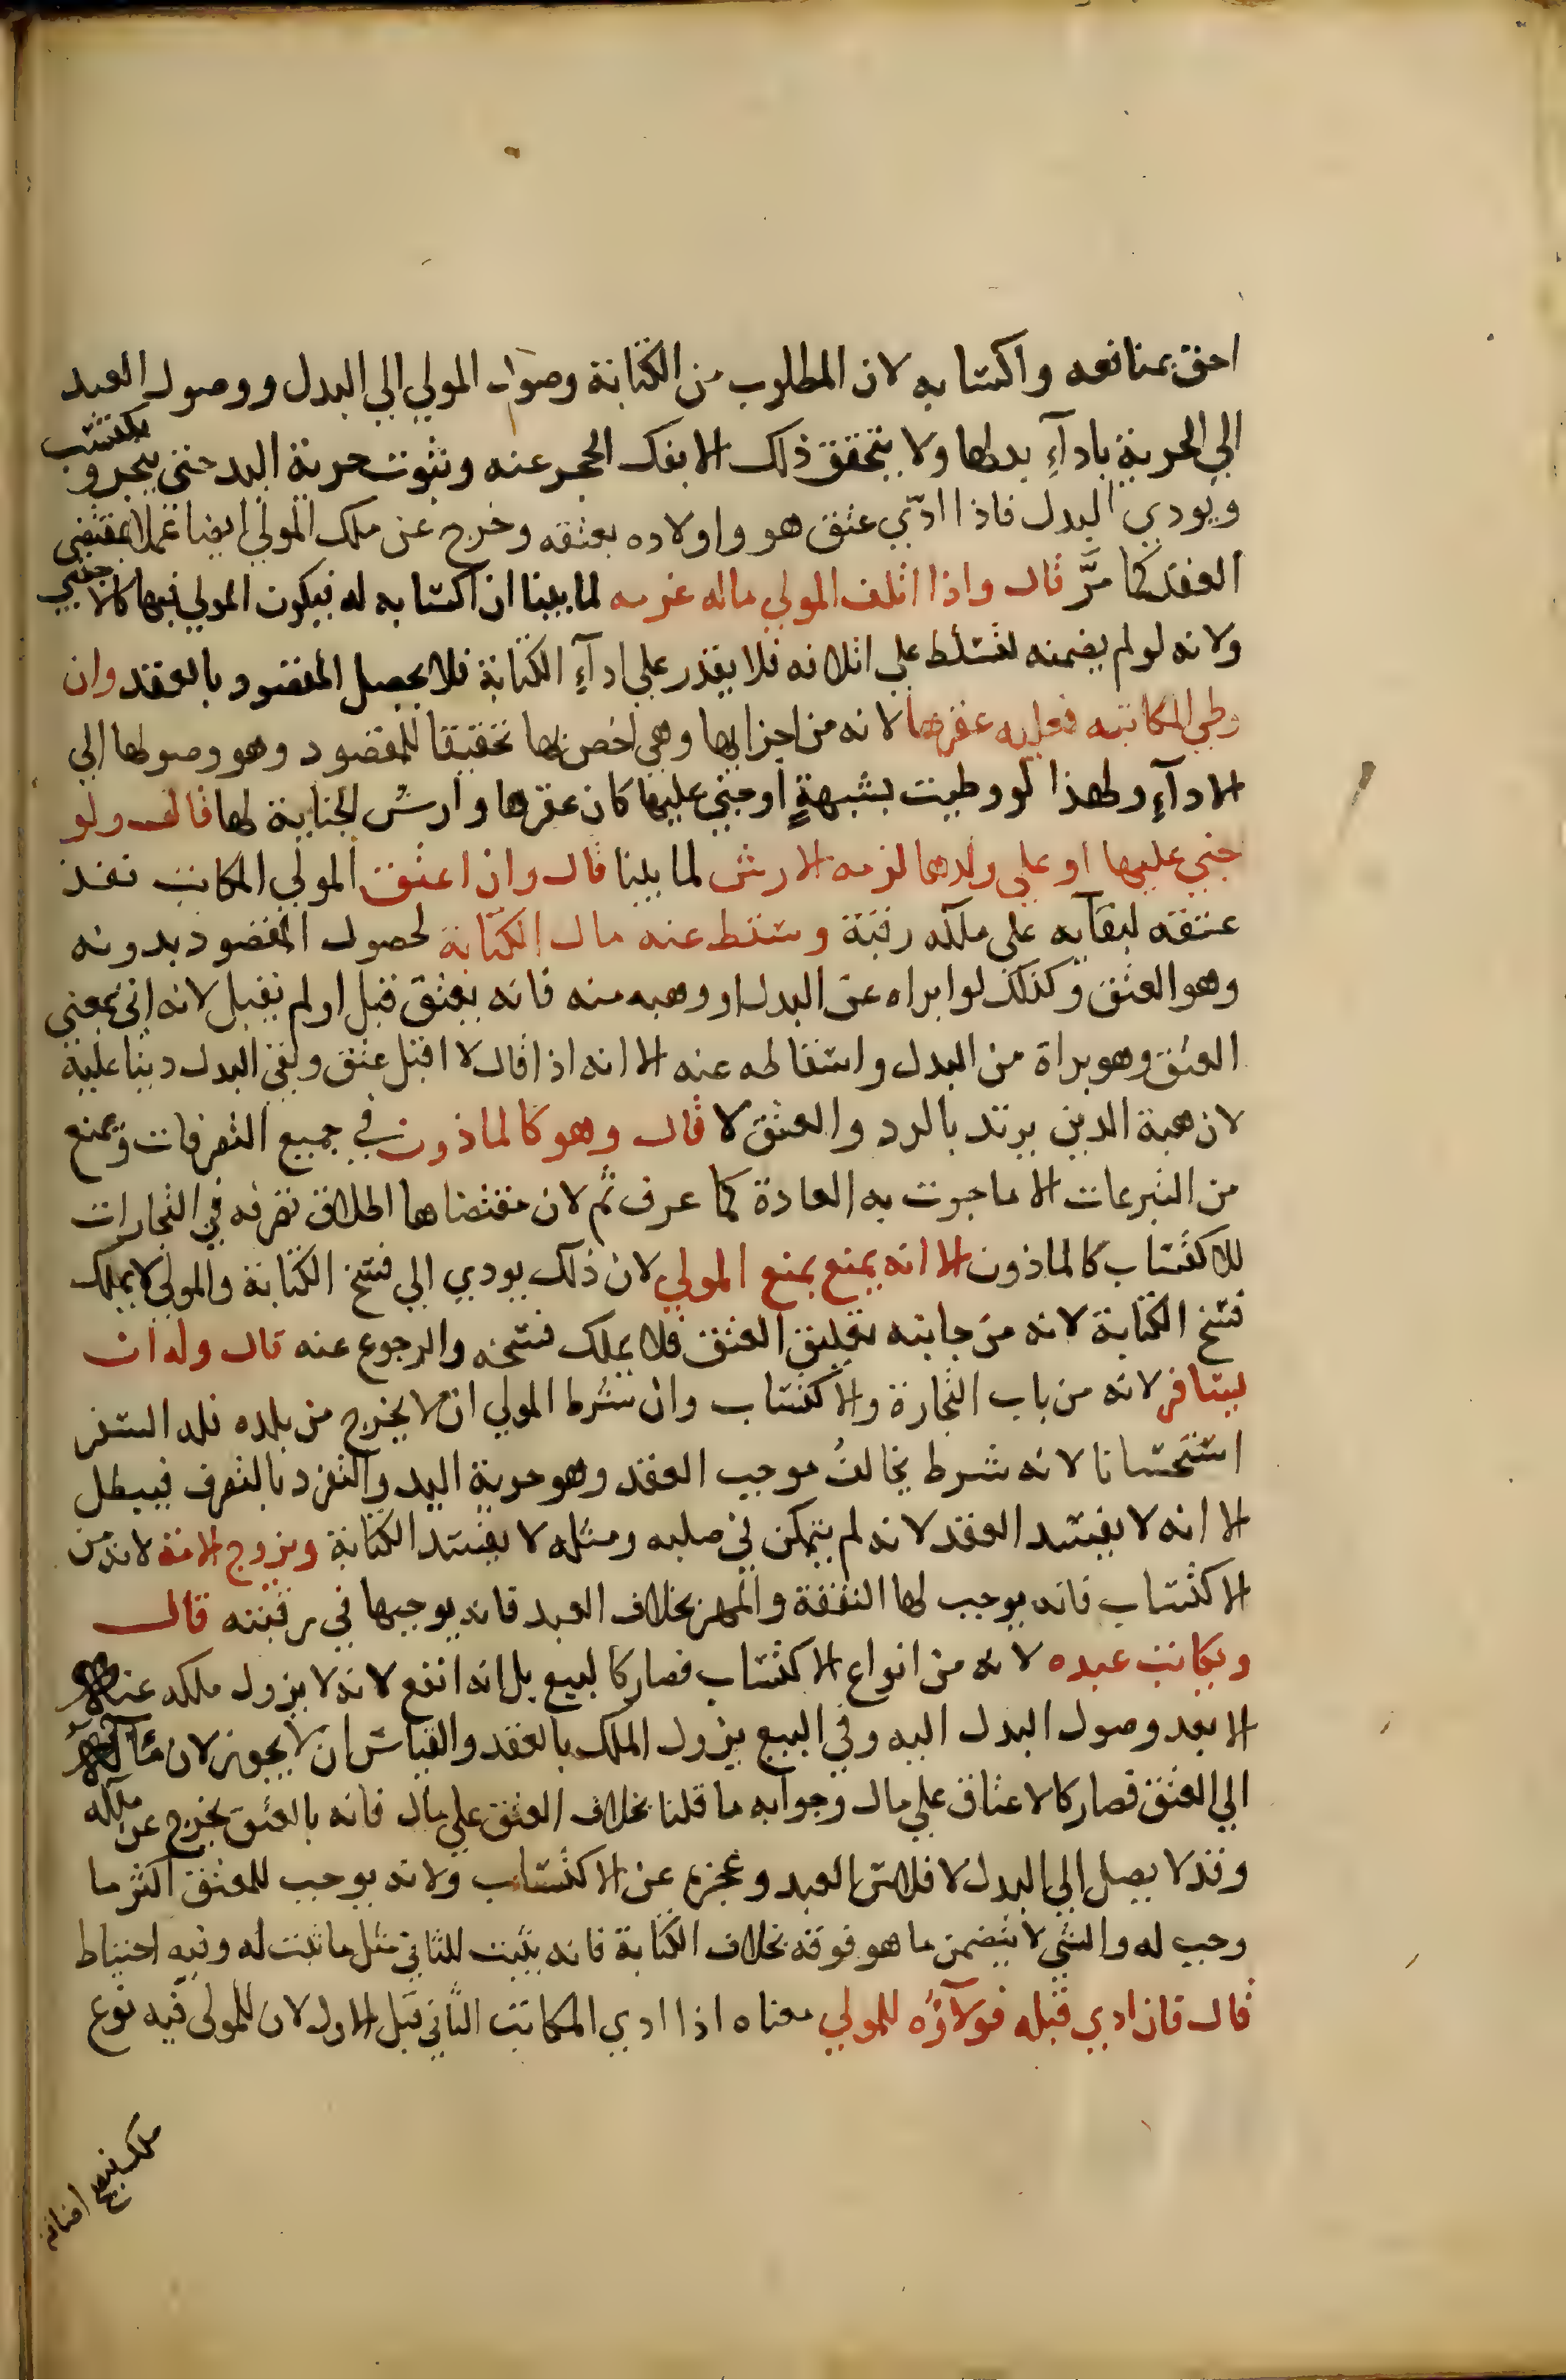 احق بمنافعه واكتسابه لان المطلوب من الكتابة وصول المولي الي البدل ووصول العبد
الي الحرية بادآء بدلها ولا يتحقق ذلك الا بفك الحجر عنه وبثوت حرية اليد حتي يتجر ويكتسب
ويودي البدل فاذا ادّي عتق هو واولاده بعتقه وخرج عن ملك المولي ايضا عملا بمقتضي
العقد كما مرَّ قال واذا اتلف المولي ماله غرمه لما بينا ان اكتسابه له فيكون المولي فيها كالاجنبي
ولانه لو لم يضمنه لتسلط علي اتلافه فلا يقدر علي ادآء الكتابة فلا يحصل المقصود بالعقد وان
وطي المكاتبه فعليه عقرها لانه من اجزايها وهي اخص بها تحقيقا للمقصود وهو وصولها الي
الادآء ولهذا لو وطيت بشبهةٍ او جني عليها كان عقرها وارش الجناية لها قال ولو
جني عليها او علي ولدها لزمه الارش لما بينا قال وان اعتق المولي المكاتب نفذ
عتقه لبقآيه علي ملكه رقبة وسقط عنه مال الكتابة لحصول المقصود بدونه
وهو العتق وكذلك لو ابراه عن البدل او وهبه منه فانه يعتق قبل او لم يقبل لانه اتي بمعني
العتق وهو براة من البدل واسقاطه عنه الا انه اذا قال لا اقبل عتق وبقي البدل دينا عليه
لان هبة الدين يرتد بالرد والعتق لا قال وهو كالماذون في جميع التصرفات ويمنع
من التبرعات الا ما جرت به العادة كما عرف ثم لان مقتضاها اطلاق تصرفه في التجارات
للاكتساب كالماذون الا انه يمنع بمنع المولي لان ذلك يودي الي فسخ الكتابة والمولي لا يملك
فسخ الكتابة لانه من جانبه تعليق العتق فلا يملك فسخه والرجوع عنه قال وله ان
يسافر لانه من باب التجارة والاكتساب وان شرط المولي ان لا يخرج من بلده فله السفر
استحسانا لانه شرط يخالفُ موجب العقد وهو حرية اليد والتفرد بالتصرف فيبطل
الا انه لا يفسد العقد لانه لم يتمكن في صلبه ومثله لا يفسد الكتابة ويزوج الامة لانه من
الاكتساب فانه يوجب لها النفقة والمهر بخلاف العبد فانه يوجبها في رقبته قال
ويكاتب عبده لانه من انواع الاكتساب فصار كالبيع بل انه انفع لانه لا يزول ملكه عنه
الا بعد وصول البدل اليه وفي البيع يزول الملك بالعقد والقياس ان لا يجوز لان مآله
الي العتق فصار كالاعتاق علي مال وجوابه ما قلنا بخلاف العتق علي مال فانه بالعتق يخرج عن ملكه
وقد لا يصل الي البدل لافلاس العبد وعجزه عن الاكتساب ولانه يوجب للمعتق اكثر ما
وجب له والشي لا يتضمن ما هو فوقه بخلاف الكتابة فانه يثبت للثاني مثل ما ثبت له وفيه احتياط
قال فان ادي قبله فولآؤه للمولي معناه اذا ادي المكاتب الثاني قبل الاول لان للمولي فيه نوع
ملك
اضافة